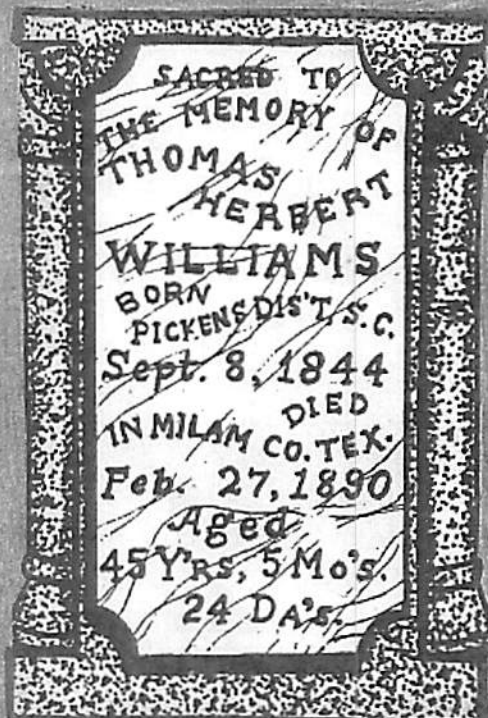 SACRED TO
THE MEMORY OF
THOMAS
HERBERT
WILLIAMS
BORN
PICKENS DIS'T, S.C.
Sept. 8, 1844
DIED
IN MILAM CO. TEX.
Feb. 27, 1890
Aged
45 Y'RS, 5 Mo's.
24 DA's.